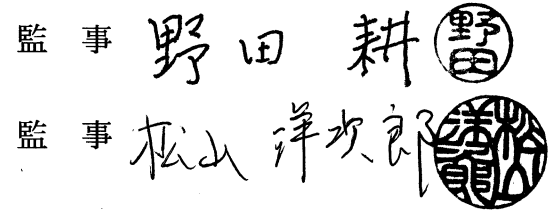 監事 野田 耕 野田
監事 松山 洋次郎